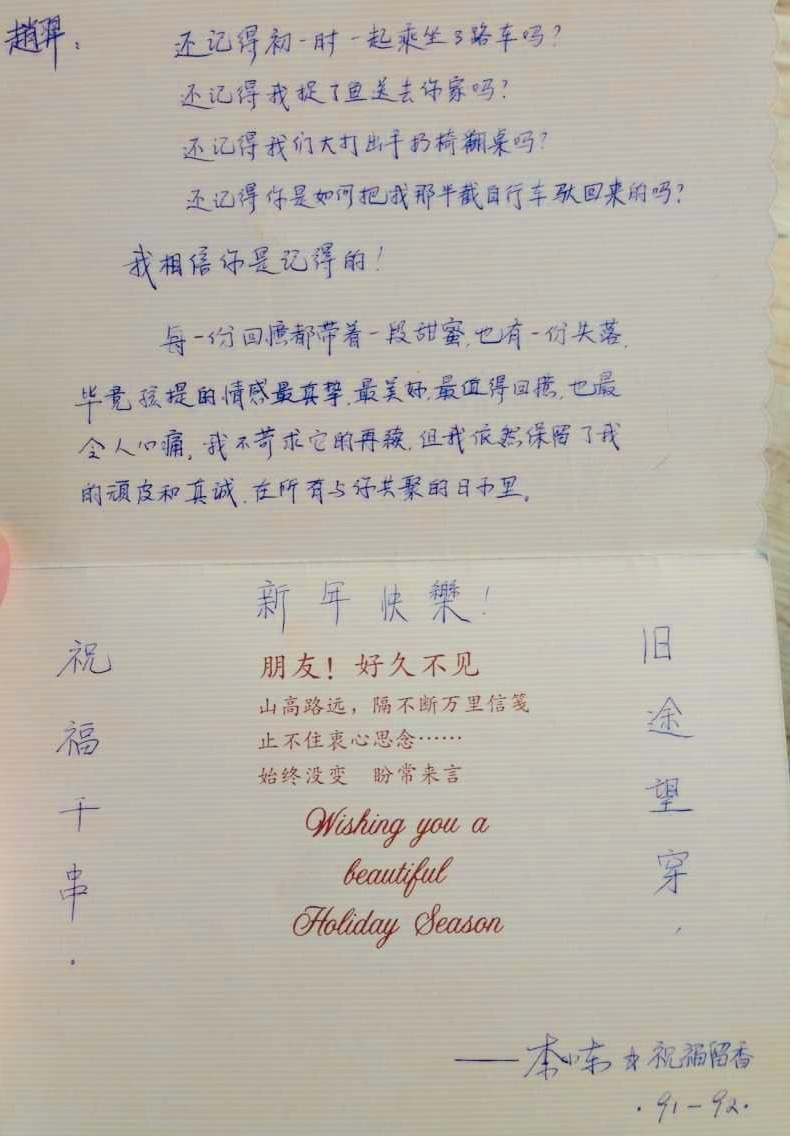 趙羿： 还记得初一时一起乘坐3路车吗？
还记得我捉了鱼送去你家吗？
还记得我们大打出手扔椅翻桌吗？
还记得你是如何把我那半截自行车驮回来的吗？
我相信你是记得的！
每一份回憶都带着一段甜蜜,也有一份失落,
毕竟孩提的情感最真挚,最美好,最值得回憶,也最
令人心痛,我不苛求它的再续,但我依然保留了我
的顽皮和真诚,在所有与你共聚的日子里。
新年快樂！
朋友！好久不见
山高路远，隔不断万里信笺
止不住衷心思念……
始终没变 盼常来言
Wishing you a
beautiful
Holiday Season
旧途望穿,
祝福千串.
——李小东 祝福留香
·91-92·